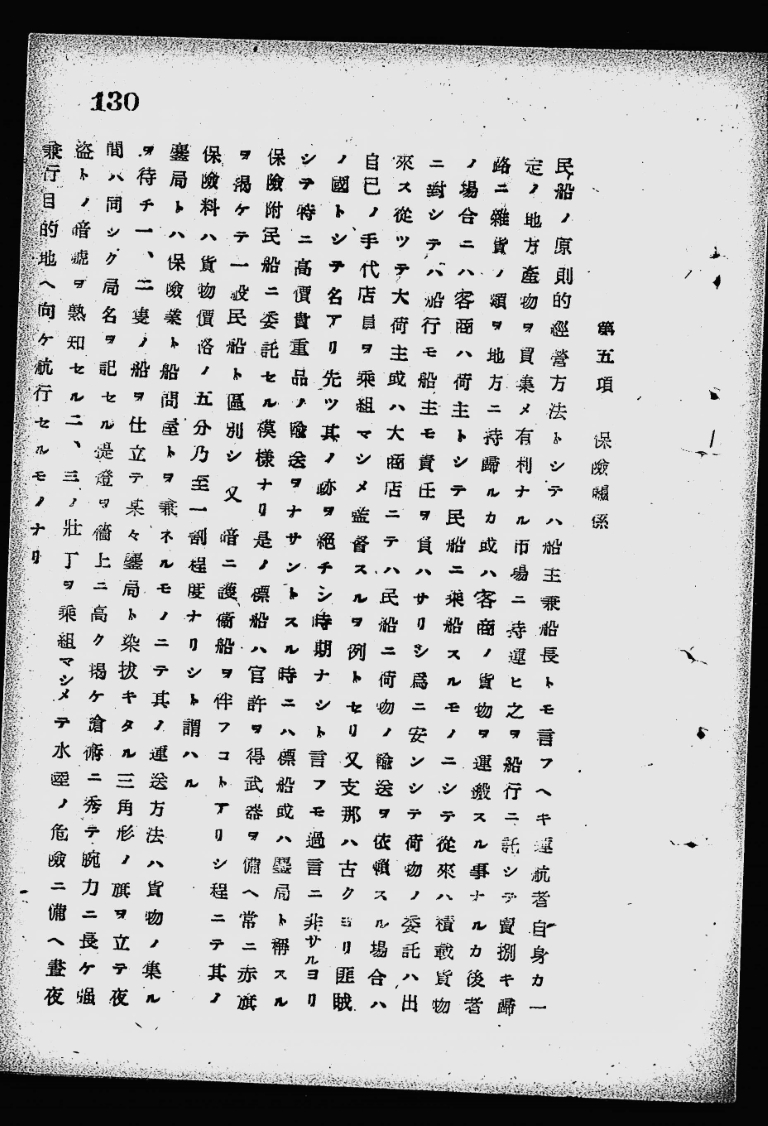 130
第五項 保險關係
民船ノ原則的經營方法トシテハ船主兼船長トモ言フヘキ運航者自身カ一
定ノ地方產物ヲ買集メ有利ナル市場ニ持運ヒ之ヲ船行ニ託シテ賣捌キ歸
路ニ雜貨ノ類ヲ地方ニ持歸ルカ或ハ客商ノ貨物ヲ運搬スル事ナルカ後者
ノ場合ニハ客商ハ荷主トシテ民船ニ乘船スルモノニシテ從來ハ積載貨物
ニ對シテハ船行モ船主モ責任ヲ負ハサリシ爲ニ安ンシテ荷物ノ委託ハ出
來ス從ツテ大荷主或ハ大商店ニテハ民船ニ荷物ノ輸送ヲ依賴スル場合ハ
自己ノ手代店員ヲ乘組マシメ監督スルヲ例トセリ又支那ハ古クヨリ匪賊
ノ國トシテ名アリ先ツ其ノ跡ヲ絕チシ時期ナシト言フモ過言ニ非サルヨリ
シテ特ニ高價貴重品ノ輸送ヲナサントスル時ニハ標船或ハ鏢局ト稱スル
保險附民船ニ委託セル模樣ナリ是ノ標船ハ官許ヲ得武器ヲ備ヘ常ニ赤旗
ヲ揭ケテ一般民船ト區別シ又暗ニ護衞船ヲ伴フコトアリシ程ニテ其ノ
保險料ハ貨物價格ノ五分乃至一割程度ナリシト謂ハル
鏢局トハ保險業ト船問屋トヲ兼ネルモノニテ其ノ運送方法ハ貨物ノ集ル
ヲ待チ一、二隻ノ船ヲ仕立テ某々鏢局ト染拔キタル三角形ノ旗ヲ立テ夜
間ハ同シク局名ヲ記セル提燈ヲ檣上ニ高ク揭ケ槍術ニ秀テ腕力ニ長ケ强
盜トノ暗號ヲ熟知セル二、三ノ壯丁ヲ乘組マシメテ水陸ノ危險ニ備ヘ晝夜
兼行目的地ヘ向ケ航行セルモノナリ